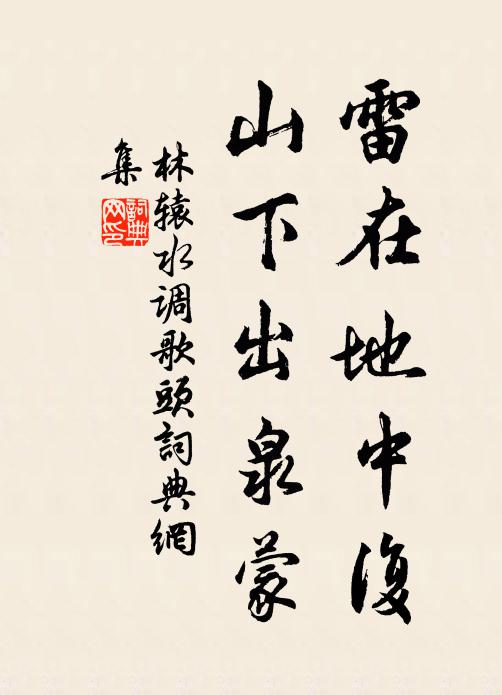 雷在地中復
山下出泉蒙
林辕水调歌頭詞典網
集
詞典网印